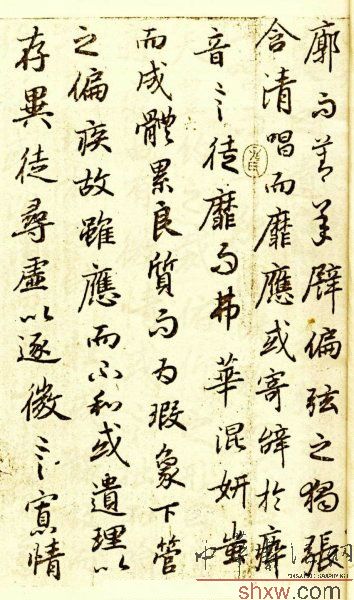 廓而莫承譬偏弦之獨張
含清唱而靡應或寄辭於瘁
音言徒靡而弗華混妍蚩
而成體累良質而為瑕象下管
之偏疾故雖應而不和或遺理以
存異徒尋虛以逐微言寡情
shxw.com